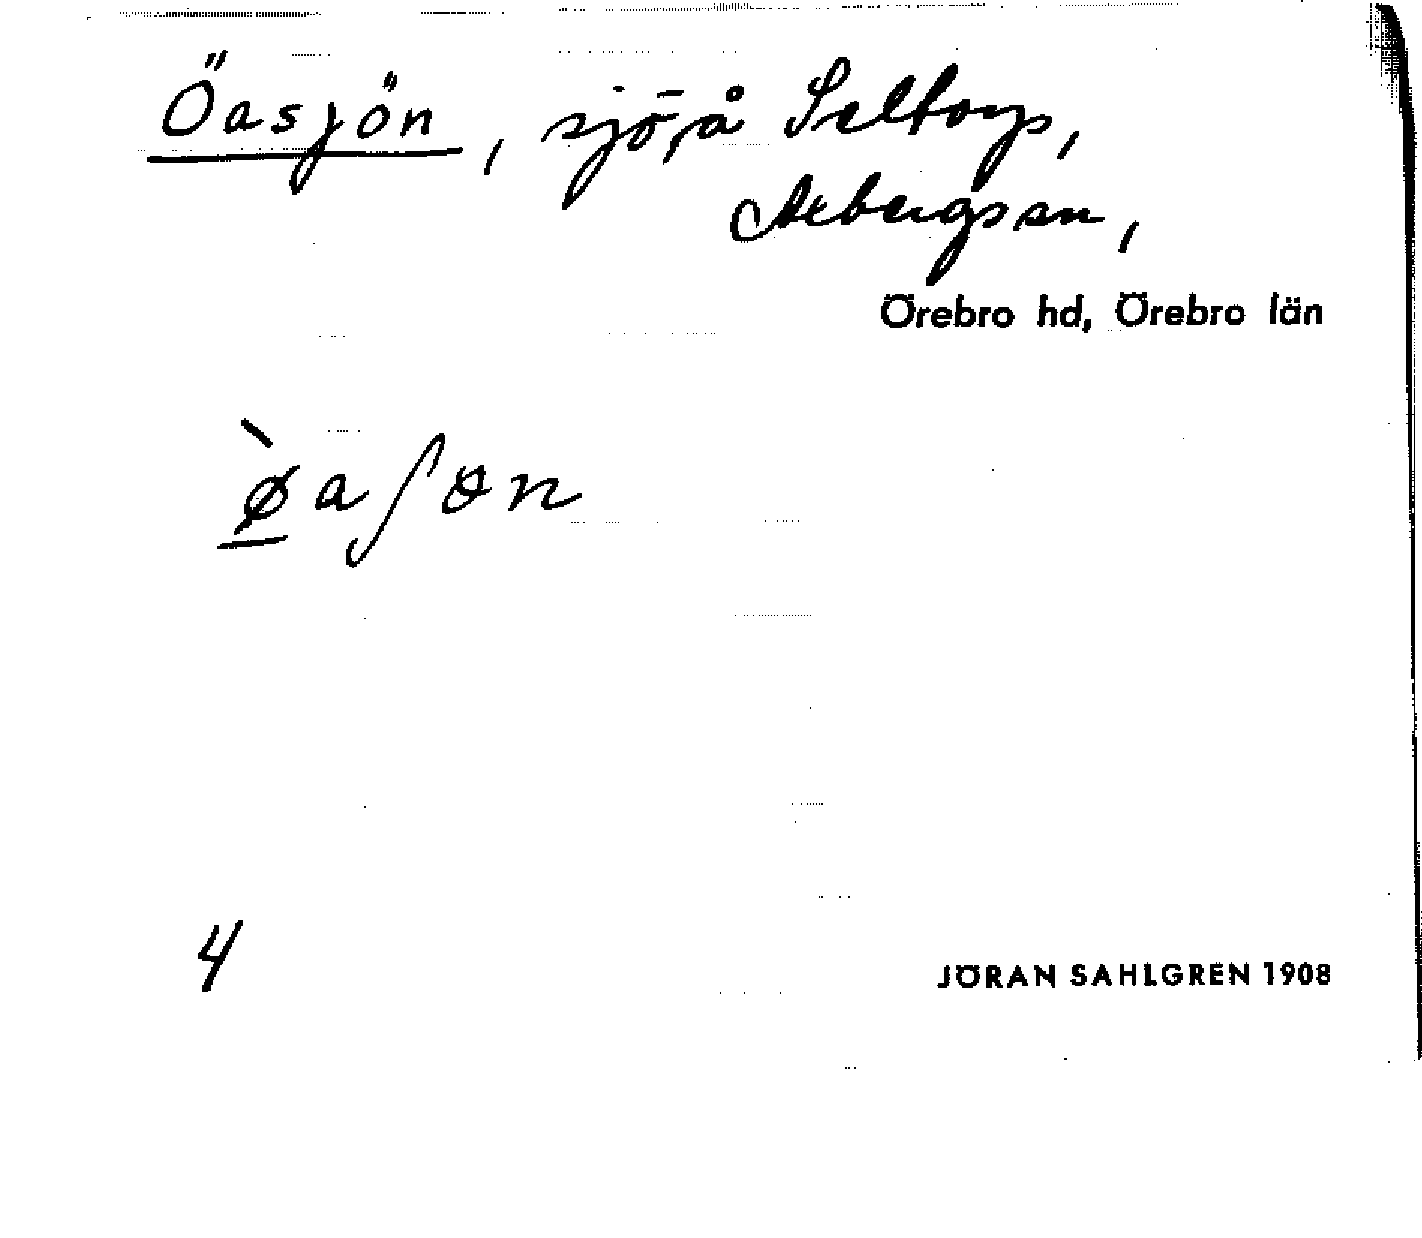 Öasjön, sjö, å Seltorp,
Axbergs sn,
Örebro hd, Örebro län
ø̱̀aʃɵn
4
JÖRAN SAHLGREN 1908